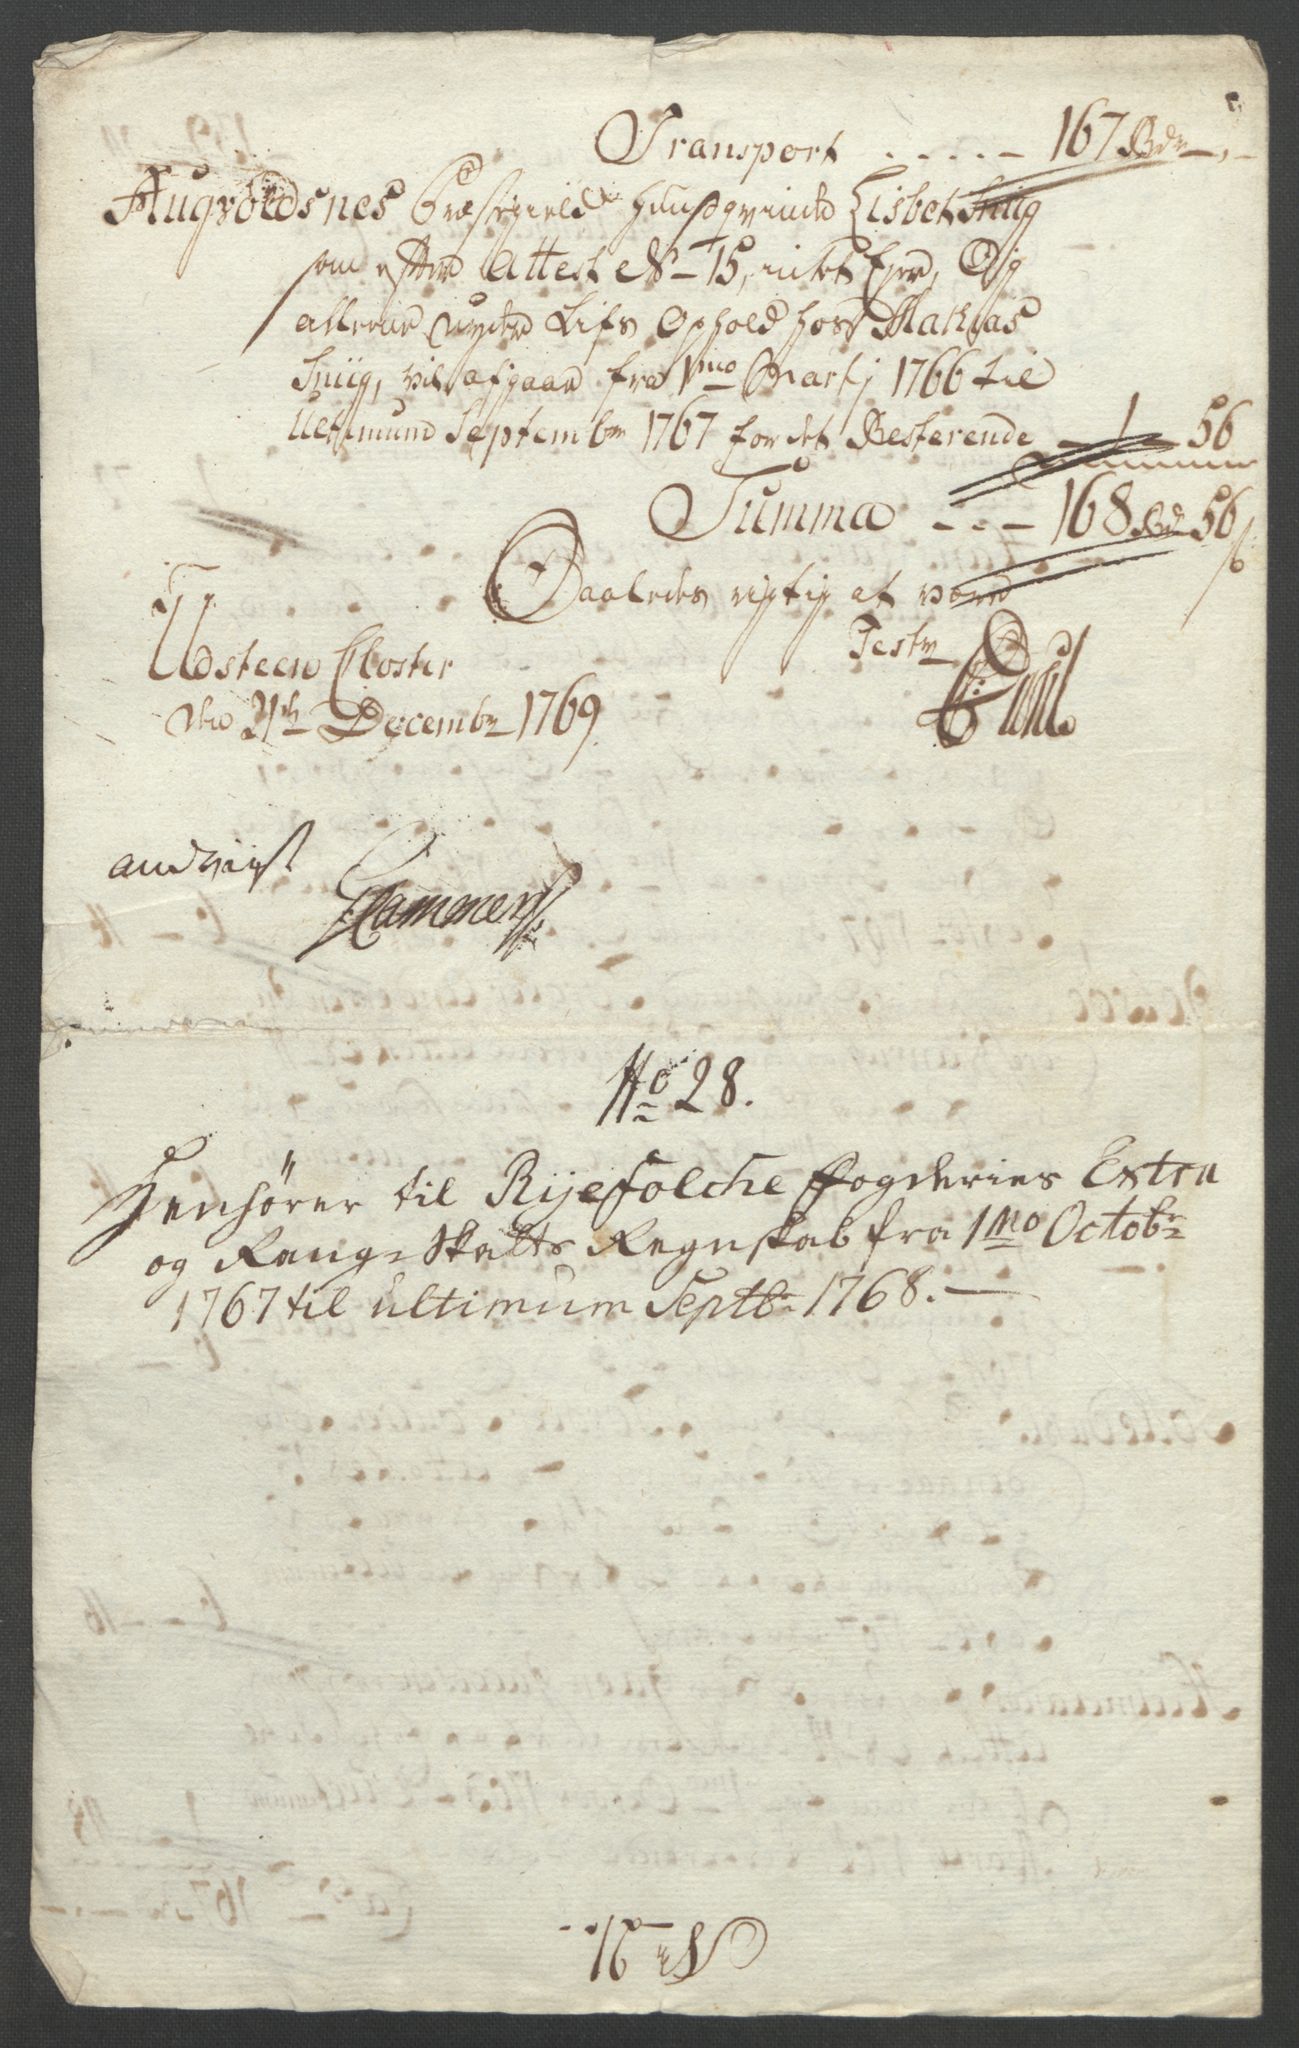 Transport - - - - - 167 Rdr - , -
Augvoldsnes Præstegield huusqvinde Lisbet Sniig
som efter Attest No 15, intet Ejer, Og
alleene nyder Lifs Ophold hos Mathias
Sniig, vil afgaae fra 1mo Martij 1766 til
Uetimund Septembr 1767 for det Resterende - 1 - 56
Summa - - - 168 Rdr 56 s
Saaledes rigtig at være
Test
Udsteen Closter
den Decembr 1769.
andviist
Hammer
No 28.
Henhører til Ryefolche Fogderies Extra
og Rang-Skatts Regnskab fra 1mo Octobr
1767 til ultimum Septbr 1768. —
No 21.